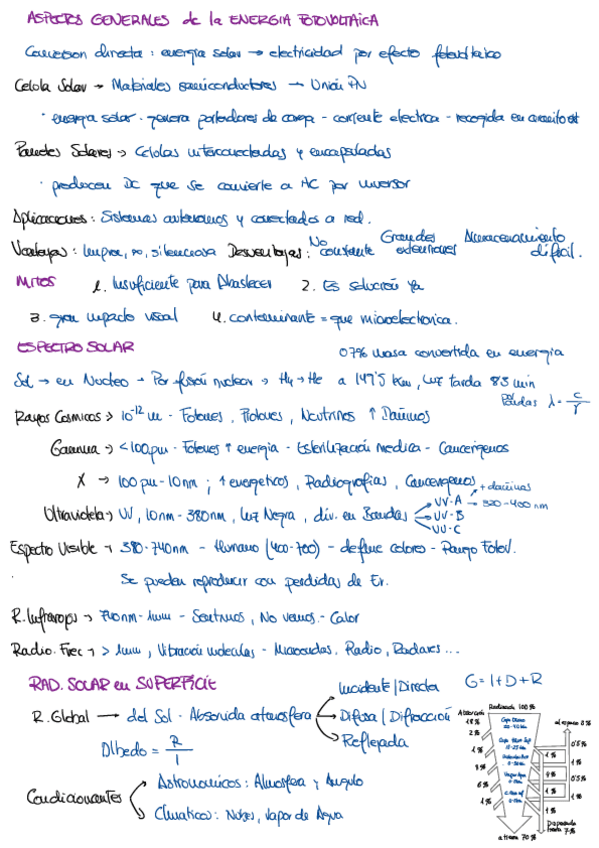 ASPECTOS GENERALES de la ENERGIA FOTOVOLTAICA
Conversion directa : energia solar → electricidad por efecto fotovoltaico
Celula Solar → Materiales semiconductores → Unión PN
· energia solar - genera portadores de carga - corriente electrica - recogida en circuito ext
Paneles Solares → Celulas interconectadas y encapsuladas
· producen DC que se convierte a AC por inversor
Aplicaciones : Sistemas autonomos y conectados a red.
Ventajas : limpia, ∞, silenciosa Desventajas : No constante Grandes extensiones Almacenamiento dificil.
MITOS 1. Insuficiente para Abastecer 2. Es solución ya
3. gran impacto visual 4. contaminante = que microelectronica.
ESPECTRO SOLAR 0'7% masa convertida en energia
Sol → en Nucleo → Por fusión nuclear → H4 → He a 149'5 Km, luz tarda 8'3 min
Rayos Cosmicos → 10⁻¹² m - Fotones, Protones, Neutrinos ↑ Dañinos λ = c
Gamma → <100pm - Fotones ↑ energia - Esterilización medica - Cancerigenos
X → 100 pm - 10nm ; ↑ energeticos, Radiografias, Cancerigenos + dañinas
Ultravioleta → UV, 10nm - 380nm, luz Negra, div. en Bandas UV-A → 320-400 nm
UV-B
UV-C
Espectro Visible → 380-740nm - Humano (400-700) - define colores - Rango Fotov.
Se pueden reproducir con perdidas de Er.
R. Infrarojos → 740nm - 1mm - Sentimos, No vemos. - Calor
Radio. Frec → > 1mm, Vibración moleculas - Microondas, Radio, Radares...
RAD. SOLAR en SUPERFICIE
R. Global → del Sol - Absorvida atmosfera Incidente / Directa G = I + D + R
Difusa / Difracción
Reflejada
Albedo = R / I
Condicionantes Astronomicos : Atmosfera y Angulo
Climaticos : Nubes, Vapor de Agua
Absorción Radiación 100%
18%
al espacio 8%
2%
1%
0'5%
1%
1%
0'5%
1%
6%
4%
1%
1%
Dispersada
7%
a tierra 70%